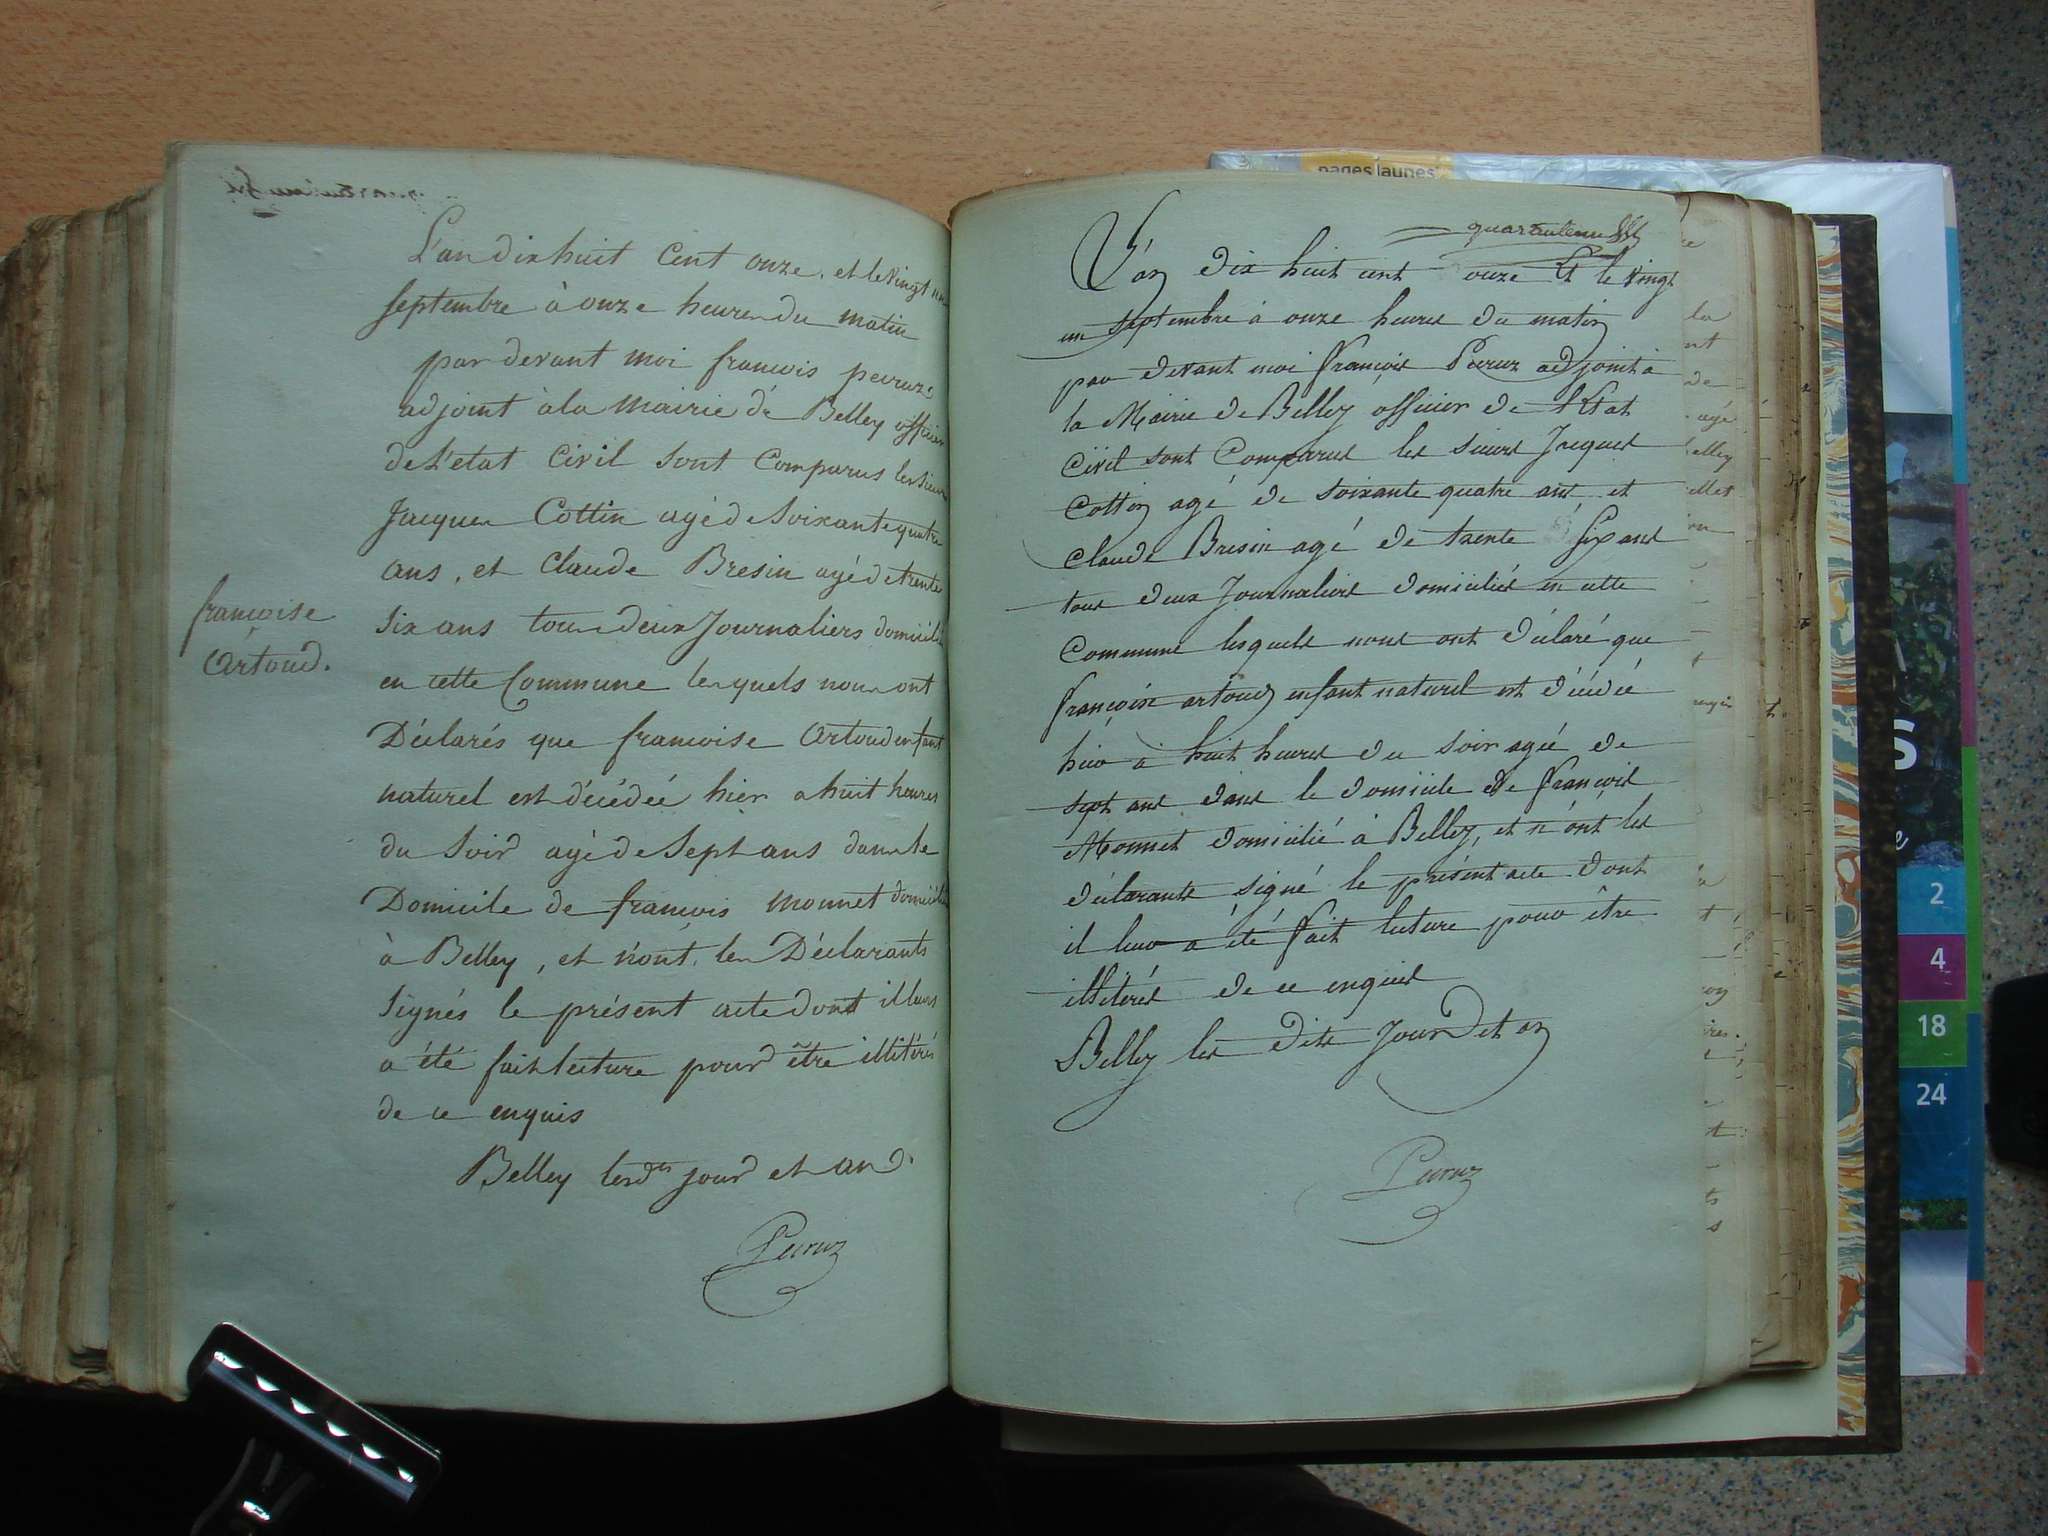 L'an dix huit Cent onze, et le vingt un
septembre à onze heures du matin
par devant moi françois peiruz
adjoint à la Mairie dé Belley officier
de l'etat Civil sont Comparus les sieurs
Jacques Cottin agé de Soixante quatre
ans, et Claude Bresin agé de trente
Six ans tous deux Journaliers domiciliés
en cette Commune lesquels nous ont
Déclarés que francoise Artoud enfant
naturel est décédéé hier a huit heures
du Soir agé de Sept ans dans le
Domicile de françois monnet domicilié
à Belley, et n'ont, les Déclarants
Signés le présent acte dont il leurs
a été fait lecture pour être illitérés
de ce enquis
Belley les dts jour et an
Peiruz
françoise
Artoud.
L'an dix huit cent onze Et le vingt
un septembre à onze heures du matin
par devant moi françois Peiruz adjoint à
la Mairie de Belley officier de l'Etat
Civil sont Comparus les sieurs Jacques
Cottin agé de soixante quatre ans et
Claude Bresin agé de trente Six ans
tous deux Journaliers domiciliés en cette
Commune lesquels nous ont déclaré que
françoise artoud enfant naturel est décédée
hier à huit heures du soir agée de
sept ans dans le domicile de françois
Monnet domicilié à Belley, et n'ont les
déclarants signé le présent acte dont
il leur a été fait lecture pour être
illitérés de ce enquis
Belley les dits Jour et an
Peiruz
pages jaunes
2
4
18
24